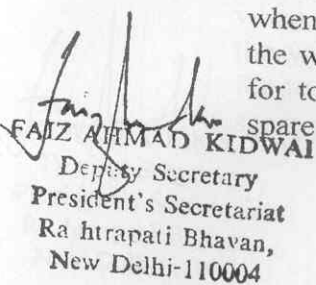 when
the w
for to
spare
FAIZ AHMAD KIDWAI
Deputy Secretary
President's Secretariat
Ra htrapati Bhavan,
New Delhi-110004